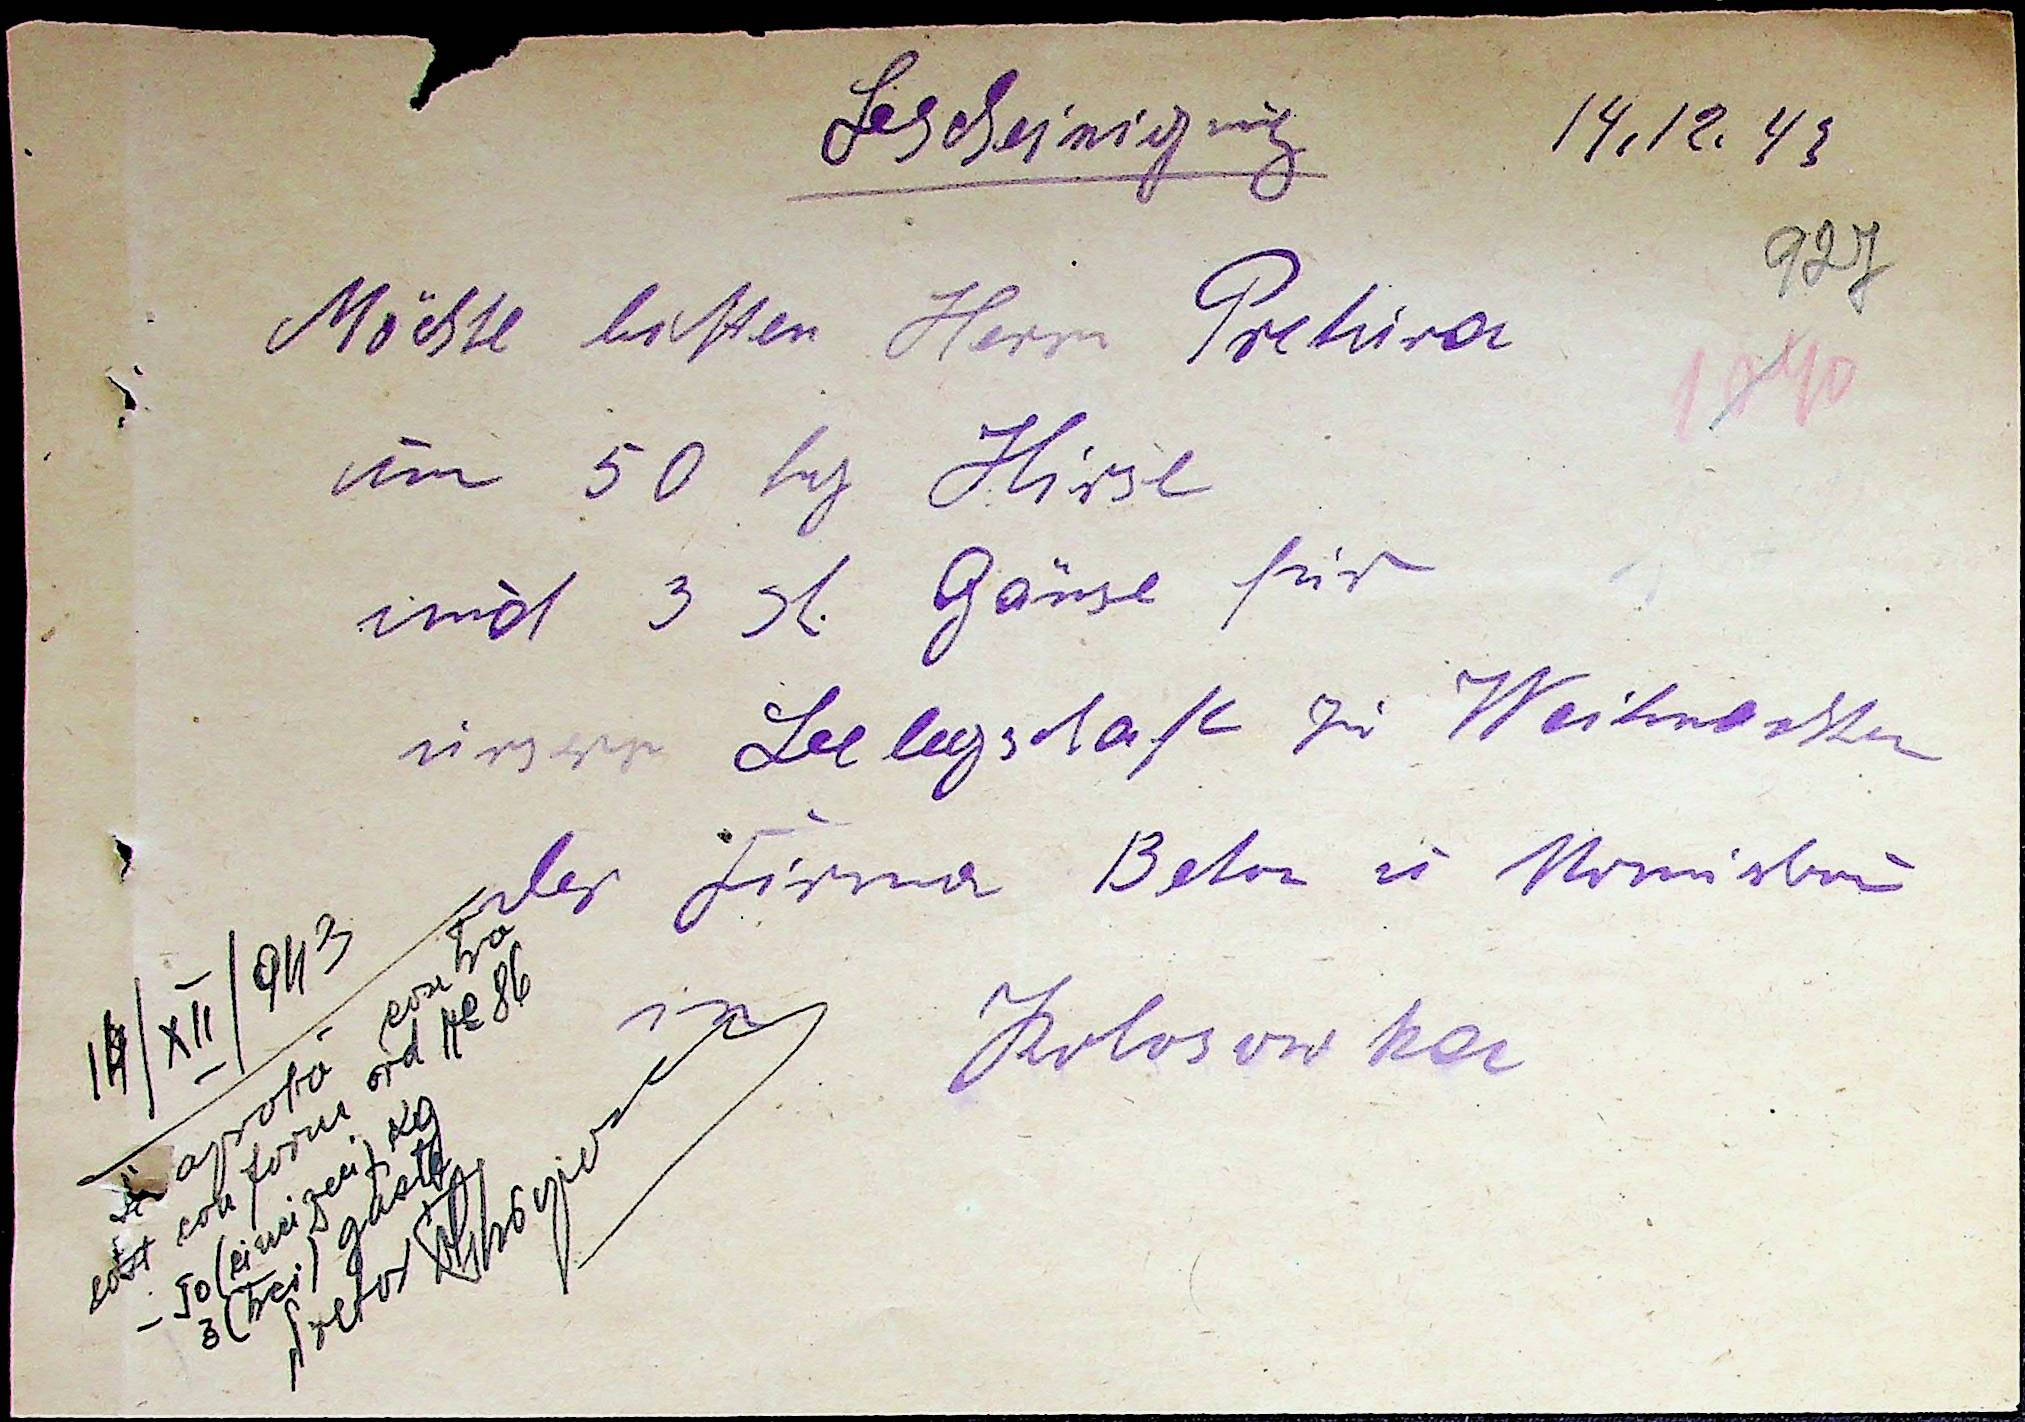 Bescheinigung 14.12.43
927
Möchte bitten Herrn Pretura
um 50 kg Hirse
und 3 st. Gänse für
unsere Belegschaft zu Weihnachten
der Firma Beton u Monierbau
in Kolosowka
14/XII/943
Se aprobă contra
cost conform ord No 86
- 50 (cincizeci) kg
3 (trei) gâște
Pretor